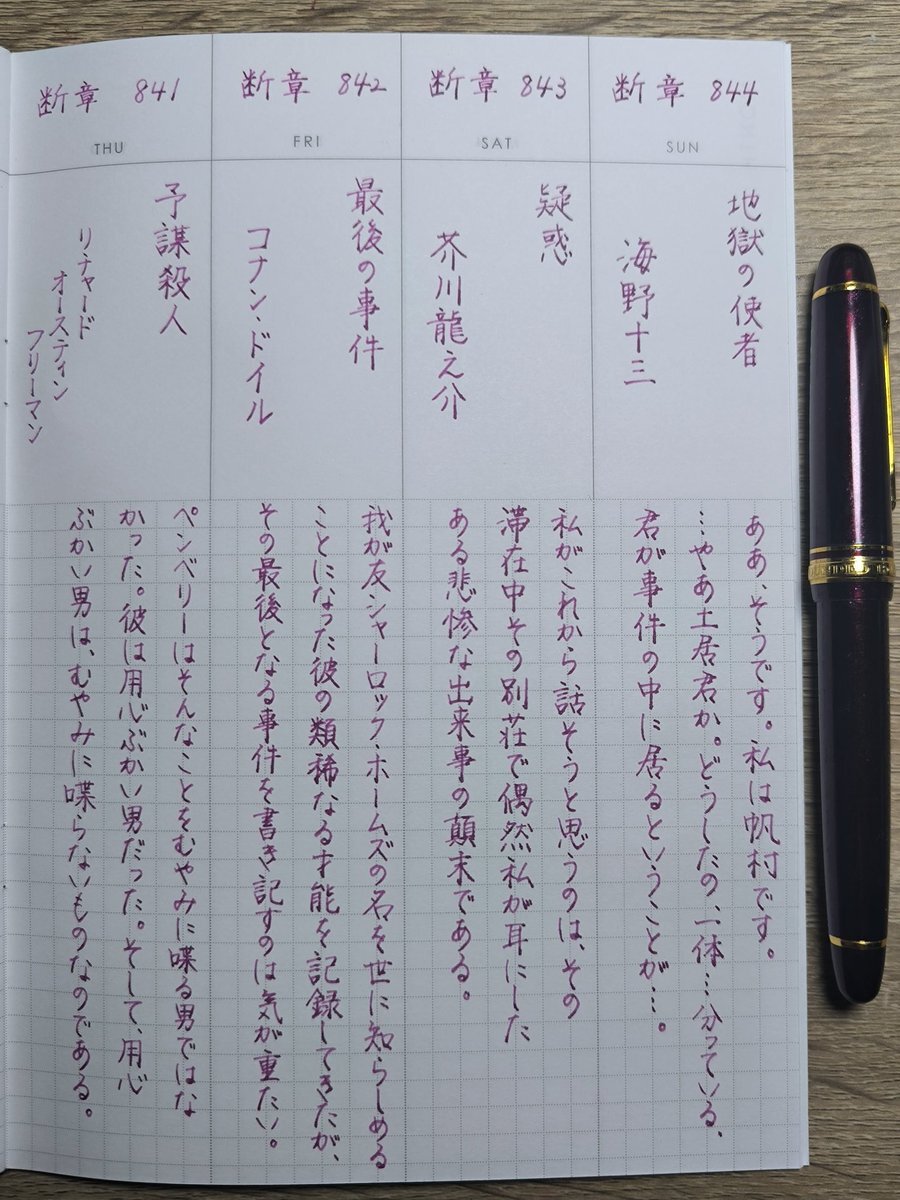 断章 841
THU
予謀殺人
リチャード
オースティン
フリーマン
ペンベリーはそんなことをむやみに喋る男ではな
かった。彼は用心ぶかい男だった。そして、用心
ぶかい男は、むやみに喋らないものなのである。
断章 842
FRI
最後の事件
コナン・ドイル
我が友シャーロック・ホームズの名を世に知らしめる
ことになった彼の類稀なる才能を記録してきたが、
その最後となる事件を書き記すのは気が重たい。
断章 843
SAT
疑惑
芥川龍之介
私がこれから話そうと思うのは、その
滞在中その別荘で偶然私が耳にした
ある悲惨な出来事の顛末である。
断章 844
SUN
地獄の使者
海野十三
ああ、そうです。私は帆村です。
…やあ土居君か。どうしたの、一体…分っている、
君が事件の中に居るということが…。